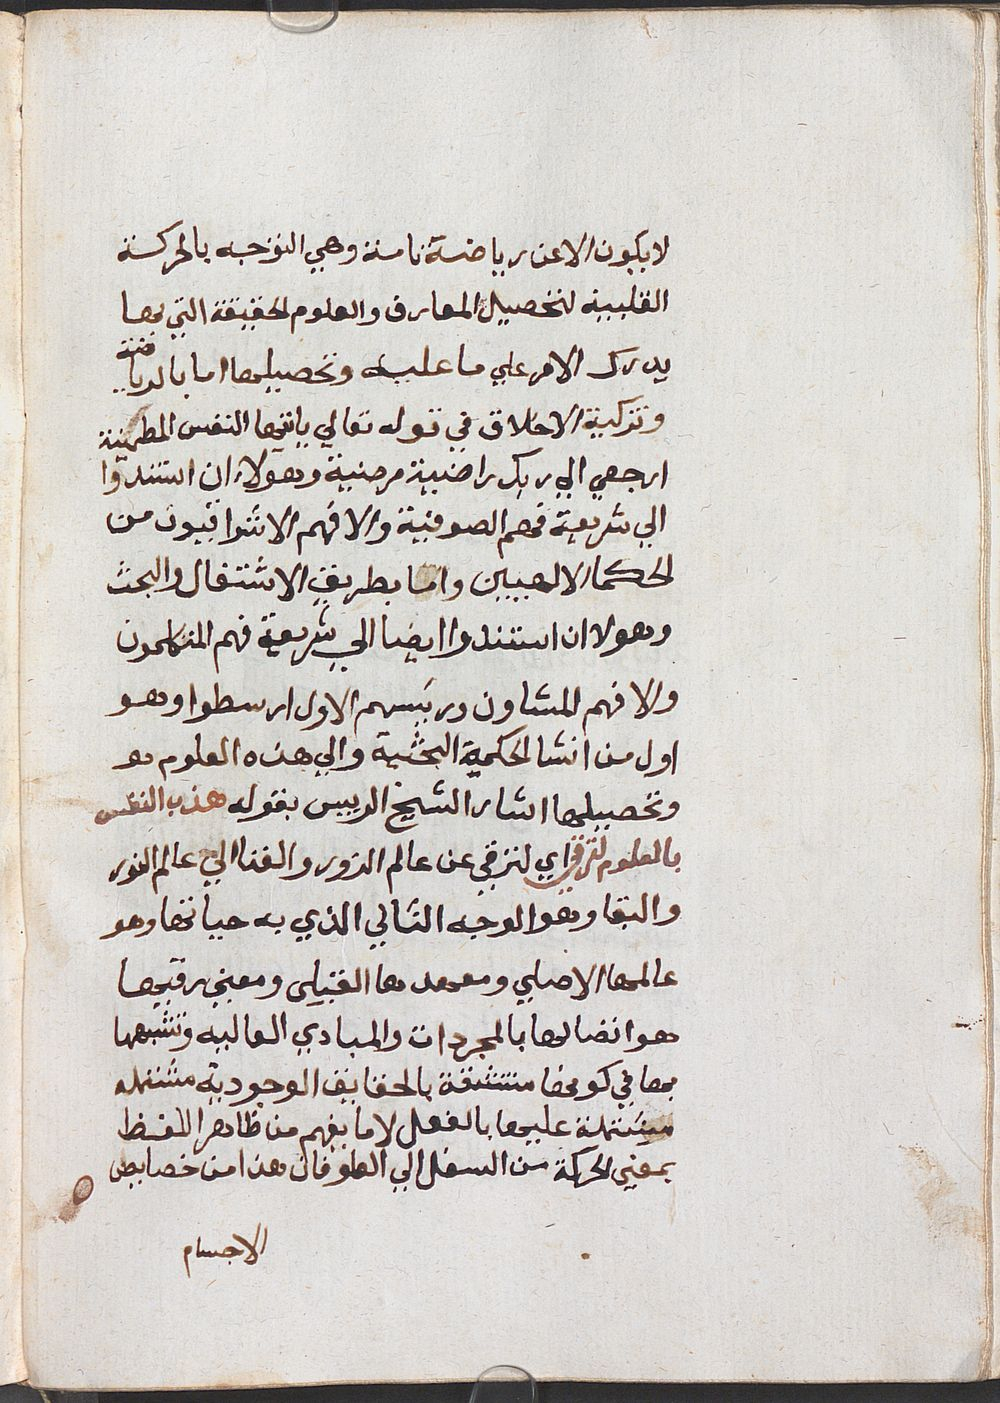 لا يكون الا عن رياضة تامة وهي التوجه بالحركة
القلبية لتحصيل المعارف والعلوم الحقيقة التي بها
يدرك الامر علي ما عليه وتحصيلها اما بالرياضة
وتزكية الاخلاق في قوله تعالي يايتها النفس المطمينة
ارجعي الي ربك راضية مرضية وهولاء ان استندوا
الي شريعة فهم الصوفية والا فهم الاشراقيون من
الحكما الالهيين واما بطريق الاشتغال والبحث
وهولا ان استندوا ايضا الي شريعة فهم المتكلمون
والا فهم المشاون وربيسهم الاول ارسطوا وهو
اول من انشا الحكمة البحثية والي هذه العلوم
وتحصيلها اشار الشيخ الرييس بقوله هذب النفس
بالعلوم لترقي اي لترقي عن عالم الزور والفنا الي عالم النور
والبقا وهو الوجه الثاني الذي به حياتها وهو
عالمها الاصلي ومعهدها القبلي ومعني رقيها
هو اتصالها بالمجردات والمبادي العاليه وتشبهها
بها في كونها منتقشة بالحقايق الوجودية مشتمله
مشتملة عليها بالفعل لا ما يفهم من ظاهر اللفظ
بمعني الحركة من السفل الي العلو فان هذا من خصايص
الاجسام